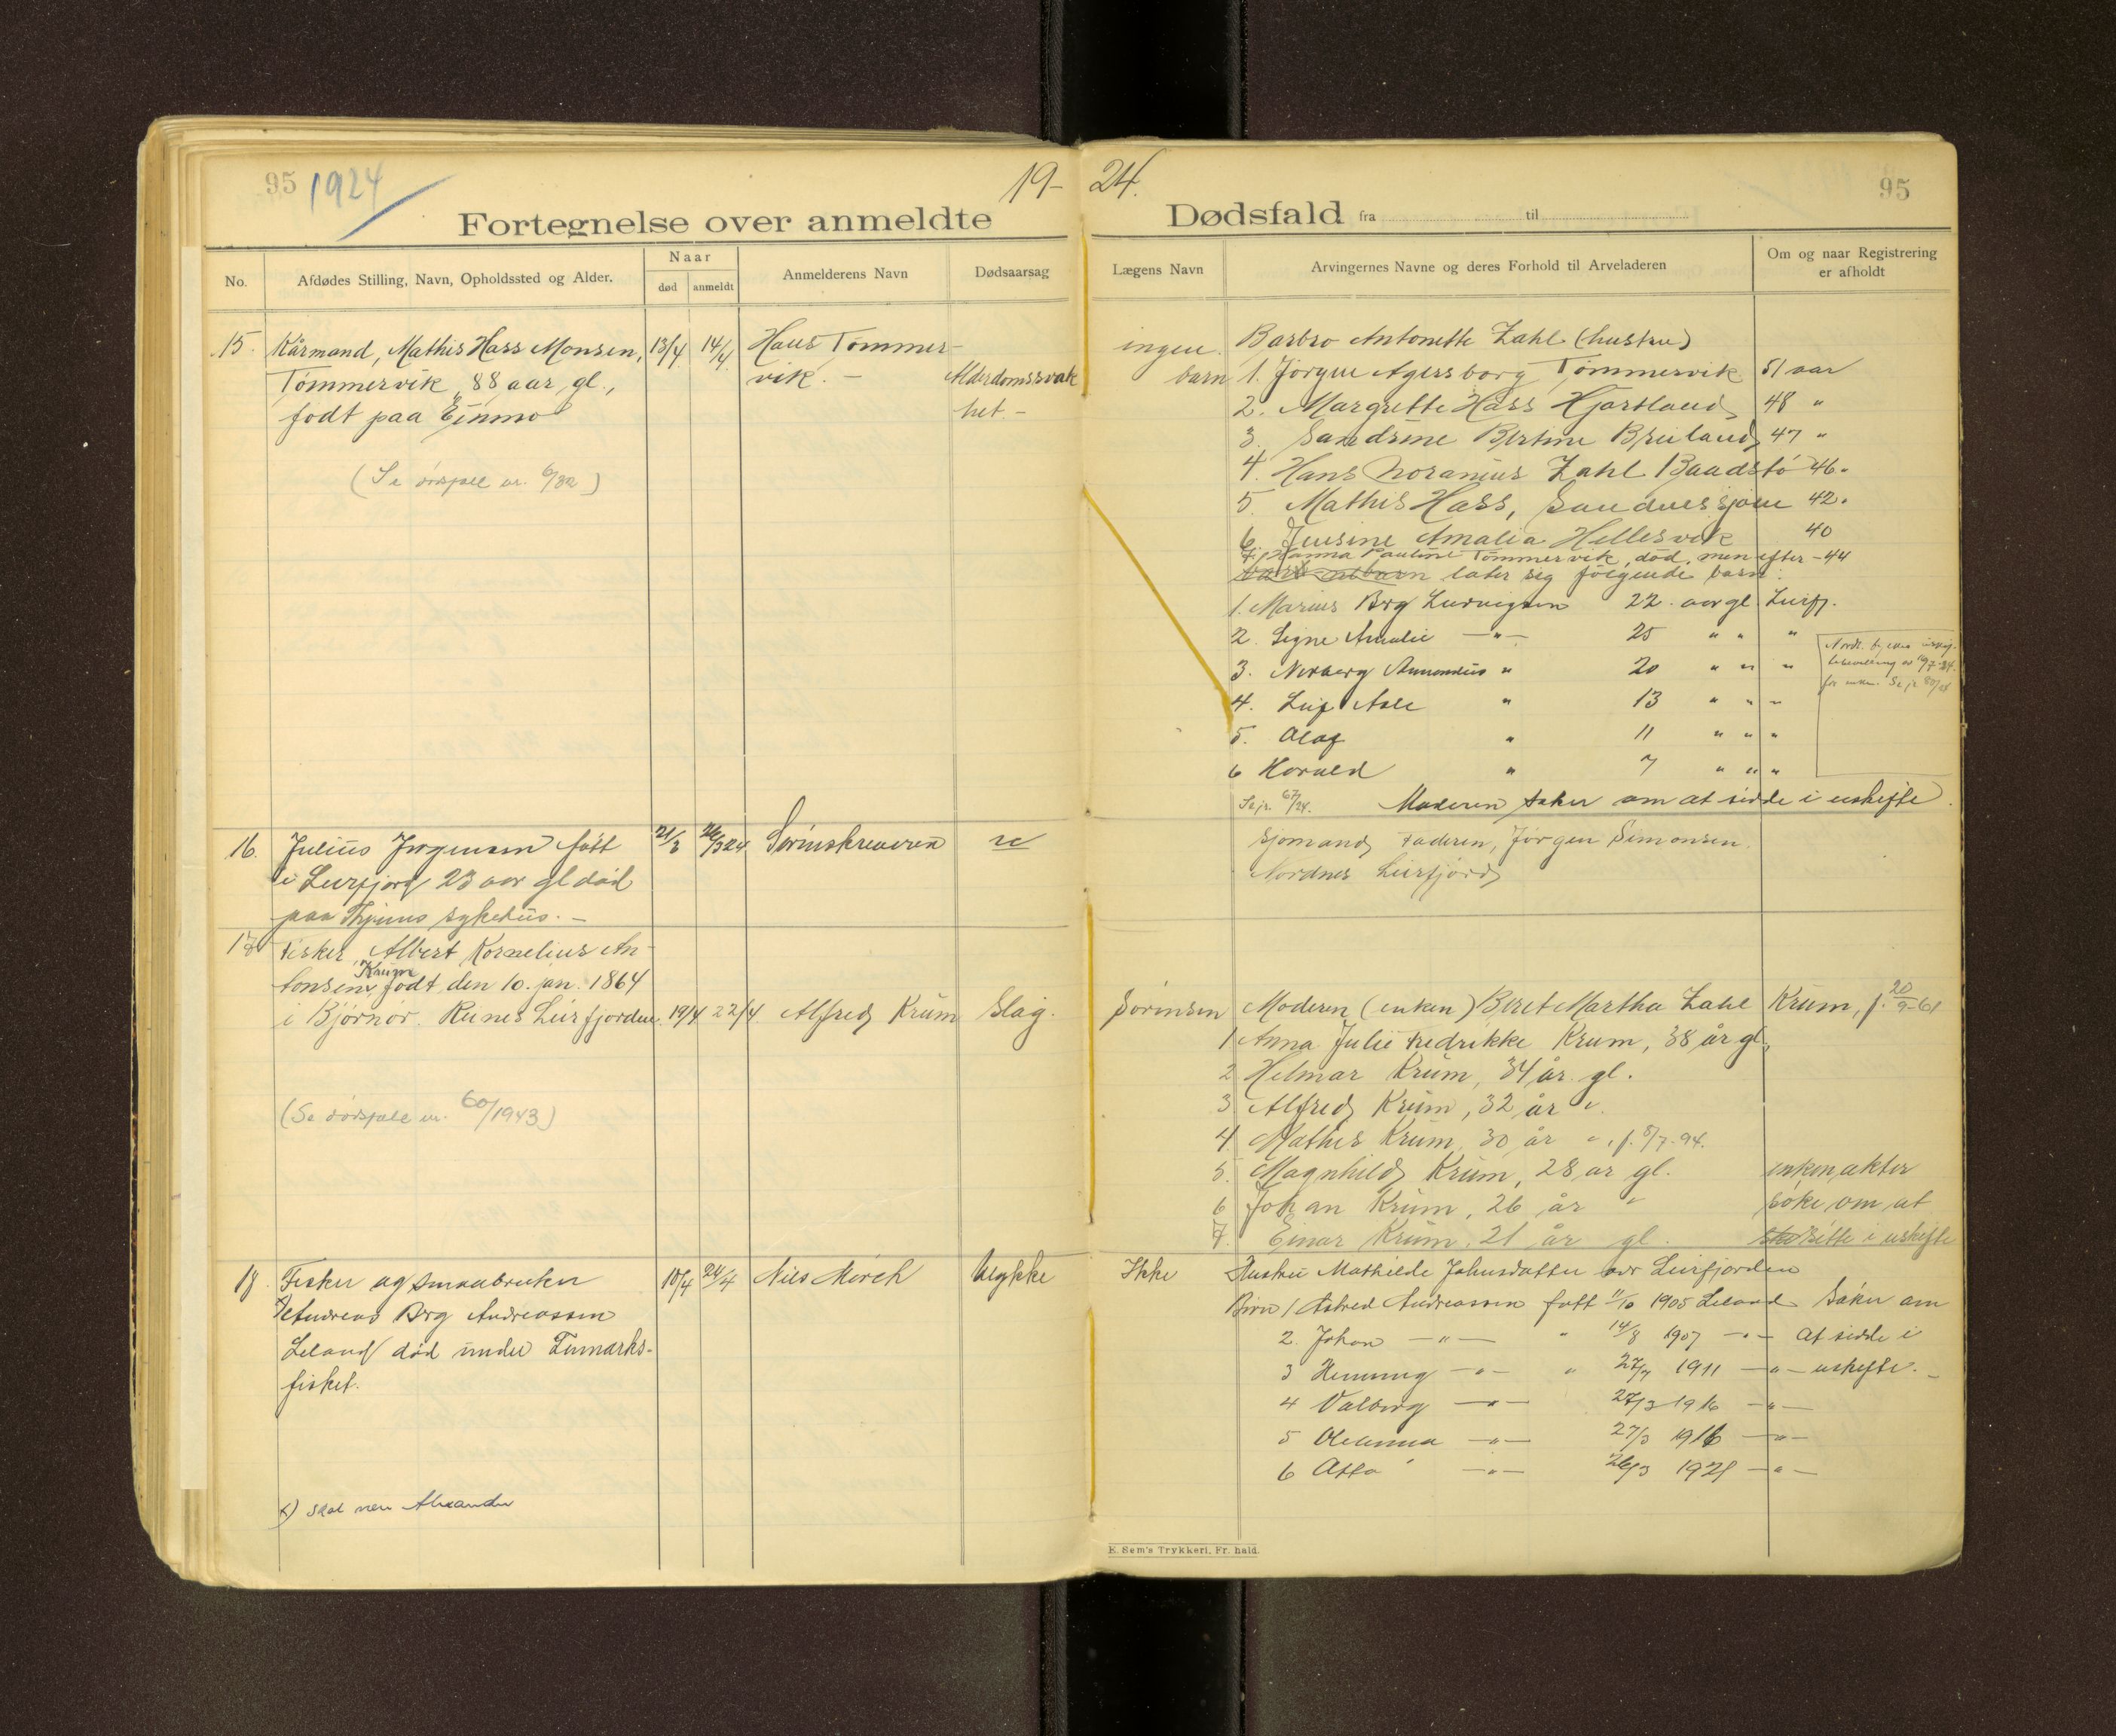 95 1924
19- 24.
95
Fortegnelse over anmeldte Dødsfald fra til
No.
Afdødes Stilling, Navn, Opholdssted og Alder.
Naar
død anmeldt
Anmelderens Navn
Dødsaarsag
Lægens Navn
Arvingernes Navne og deres Forhold til Arveladeren
Om og naar Registrering
er afholdt
15. Kårmand, Mathis Hass Monsen, 13/4 14/4 Hans Tømmer-
Tømmervik, 88 aar gl., vik. - Alderdomssvak
født paa Einmo het. -
(Se dødsfall nr. 6/32)
ingen. Barbro Antonette Zahl (hustru)
barn 1. Jörgen Agersborg Tømmervik 51 aar
2. Margrethe Hass Hjartland 48 "
3. Sandrine Bertine Breiland 47 "
4. Hans Noranius Zahl Baadstø 46.
5. Mathis Hass, Sandnessjøen 42.
6. Jensine Amalia Hellesvik 40
7. Hanna Pauline Tømmervik, død, men efter - 44
later sig følgende barn:
1. Marius Brg Ludvigsen 22. aar gl. Leirfj.
2. Signe Amalie —"— 25 " " "
3. Norberg Amundus " 20 " " "
4. Leif Asle " 13 " " "
5. Olaf " 11 " " "
6 Harald " 7 " " "
Se jr. 67/24. Moderen søker om at sidde i uskifte.
16. Julius Jørgensen født 21/3 26/3 24 Sorinskriveren
i Leirfjord 23 aar gl død
paa sykehus. -
Sjømand, Faderen, Jørgen Simonsen.
Nordnes Leirfjord
17 Fisker, Albert Kornelius An-
tonsen Krum, født den 10. jan. 1864
i Bjørnør. Rines Leirfjorden. 19/4 22/4 Alfred Krum Slag.
(Se dødsfall nr. 60/1943)
Sørensen Moderen (enken) Beret Martha Zahl Krum, f. 20/9-61
1 Anna Julie Fredrikke Krum, 38 år gl.
2 Helmar Krum, 34 år gl.
3 Alfred Krum, 32 år "
4. Mathis Krum, 30 år ", f. 8/7-94.
5. Magnhild Krum, 28 år gl. enken akter
6 Johan Krum, 26 år " søke om at
7. Einar Krum, 21 år gl. sitte i uskifte
18. Fisker og smaabruker 10/4 24/4 Nils Mörch Ulykke
x) Andreas Berg Andreassen
Leland død under Finmarks-
fisket.
x) skal være Alexander
Ikke Hustru Mathilde Johnsdatter av Leirfjorden
Børn 1 Astrid Andreassen født 11/10 1905 Leland Søker om
2. Johan —"— " 14/8 1907 —"— at sidde i
3 Henning —"— " 27/7 1911 —"— uskifte. -
4 Valborg —"— 27/3 1916 —"—
5 Oleanna —"— 27/3 1916 —"—
6 Asta —"— 26/3 1921 —"—
E. Sem's Trykkeri, Fr. hald.